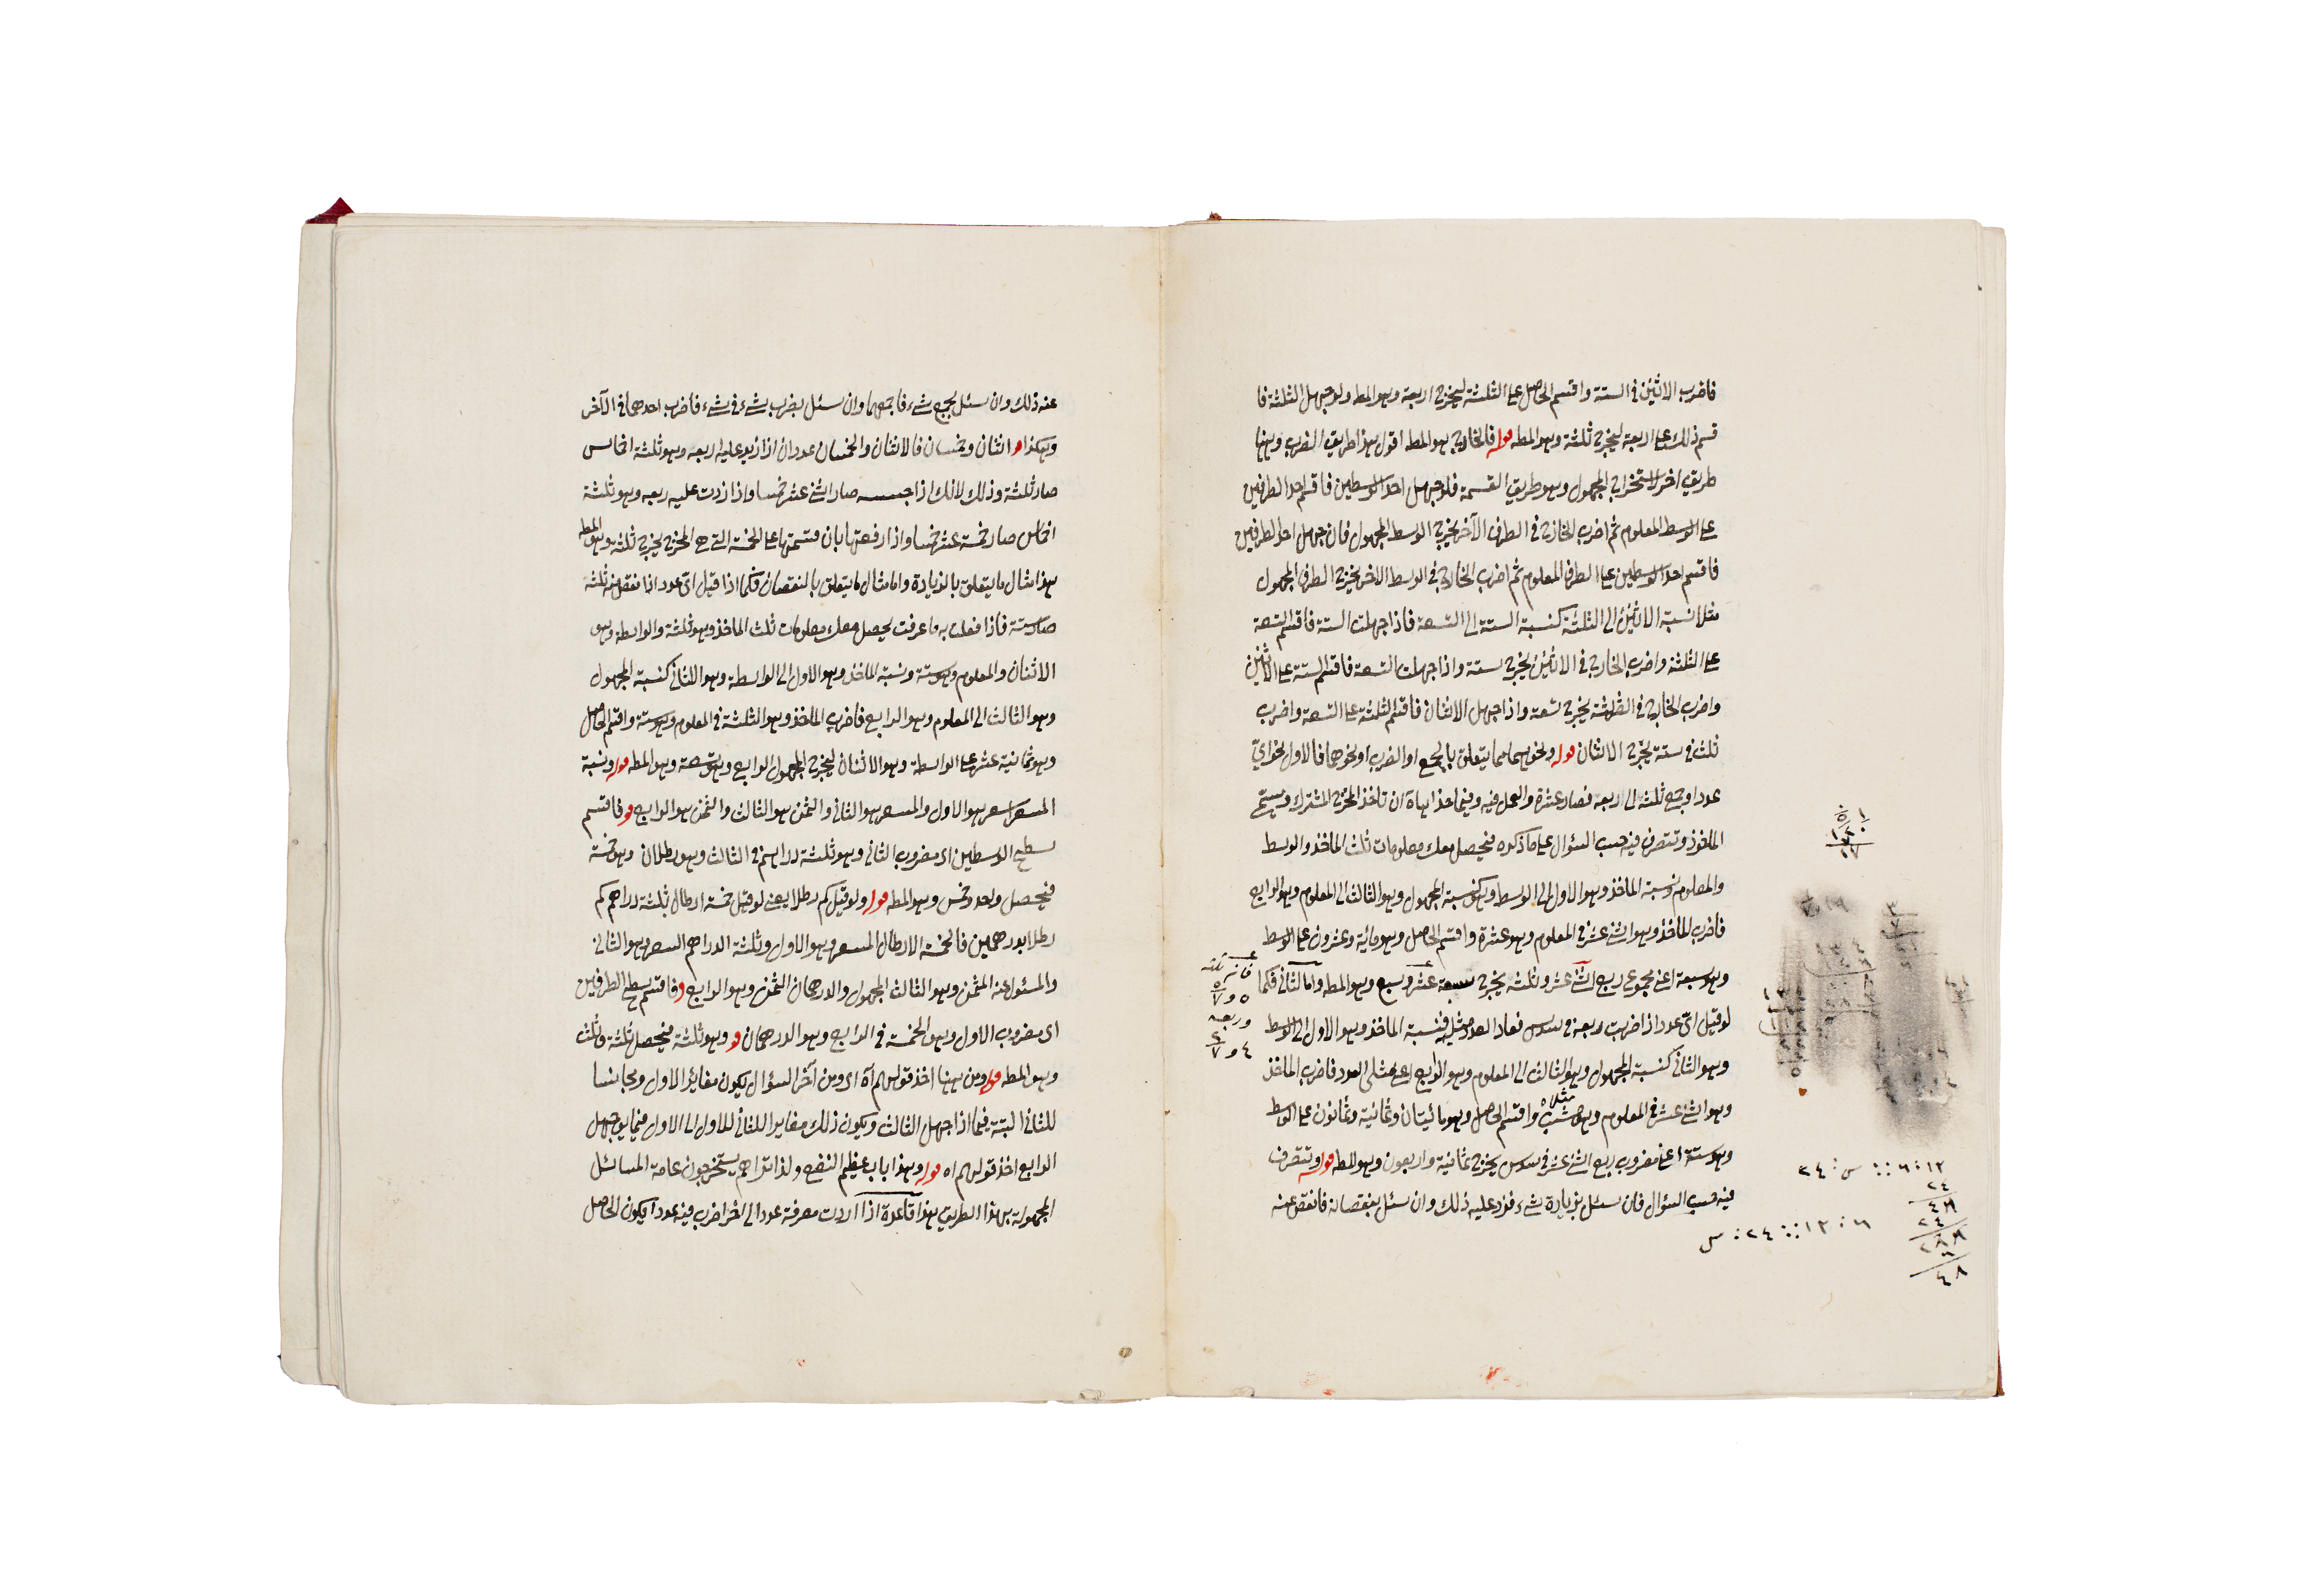 فاضرب الاثنين في الستة واقسم الحاصل على الثلثة ليخرج اربعة وهو المط ولو جهل الثلثة فا
قسم ذلك على اربعة ليخرج ثلثة وهو المط قوله فالخارج هو المط اقول هذا طريق الضرب وههنا
طريق اخر لاستخراج المجهول وهو طريق القسمة فلو جهل احد الوسطين فاقسم احد الطرفين
على الوسط المعلوم ثم اضرب الخارج في الطرف الآخر يخرج الوسط المجهول فان جهل احد الطرفين
فاقسم احد الوسطين على الطرف المعلوم ثم اضرب الخارج في الوسط الاخر يخرج الطرف المجهول
مثلا نسبة الاثنين الى الثلثة كنسبة الستة الى التسعة فاذا جهلت الستة فاقسم التسعة
على الثلثة واضرب الخارج في الاثنين يخرج ستة واذا جهلت التسعة فاقسم الستة على الاثنين
واضرب الخارج في الثلثة يخرج تسعة واذا جهل الاثنان فاقسم الثلثة على التسعة واضرب
ثلث في ستة يخرج الاثنان قوله ونحوهما مما يتعلق بالجمع او الضرب او نحوهما فالاول نحو اي
عدد اذا جمع ثلثه الى ربعه فصار عشرة والعمل فيه وفيما حذاه اه ان تأخذ المخرج المشترك ويسمى
المأخوذ وتتصرف فيه حسب السؤال على ما ذكره فيحصل معك معلومات ثلث المأخذ والوسط
والمعلوم ونسبة المأخذ وهو الاول الى الوسط وهو كنسبة المجهول وهو الثالث الى المعلوم وهو الرابع
فاضرب المأخذ وهو اثنى عشر في المعلوم وهو عشرة واقسم الحاصل وهو مائة وعشرون على الوسط
وهو سبعة اعني مجموع ربع اثنى عشر وثلثه يخرج سبعة عشر وسبع وهو المط واما الثاني فكما
لو قيل اي عدد اذا ضربت ربعه في سدس فعاد العدد مثليه فنسبة المأخذ وهو الاول الى الوسط
وهو الثاني كنسبة المجهول وهو الثالث الى المعلوم وهو الرابع اعني مثلي العدد فاضرب المأخذ
وهو اثنى عشر في المعلوم وهو مثلاه واقسم الحاصل وهو مائتان وثمانية وثمانون على الوسط
وهو ستة اعني مضروب ربع اثنى عشر في سدس يخرج ثمانية واربعون وهو المط قوله وتتصرف
فيه حسب السؤال فان سئل بزيادة شيء فزد عليه ذلك وان سئل بنقصانه فانقص عنه
١٢ : ٦ :: س : ٢٤
٢٤
٤٨
٢٤
٢٨٨
٦
٤٨
٦ : ١٢ :: ٢٤ : س
عنه ذلك وان سئل بجمع شيء فاجمعهما وان سئل بضرب شيء في شيء فاضرب احدهما في الآخر
وهكذا و اثنان وخمسان فالاثنان والخمسان عددان اذا زيد عليه ربعه وهو ثلثة اخماس
صار ثلثة وذلك لانك اذا جنسته صار اثنى عشر خمسا واذا زدت عليه ربعه وهو ثلثة
اخماس صار خمسة عشر خمسا واذا رفعتها بان قسمتها على الخمسة التي هي المخرج يخرج ثلثة وهو المط
هذا مثال ما يتعلق بالزيادة واما مثال ما يتعلق بالنقصان فكما اذا قيل اي عدد اذا نقص منه ثلثه
صار ستة فاذا فعلت به ما عرفت يحصل معك معلومات ثلث المأخذ وهو ثلثة والواسطة وهو
الاثنان والمعلوم وهو ستة ونسبة المأخذ وهو الاول الى الواسطة وهو الثاني كنسبة المجهول
وهو الثالث الى المعلوم وهو الرابع فاضرب المأخذ وهو الثلثة في المعلوم وهو ستة واقسم الحاصل
وهو ثمانية عشر على الواسطة وهو الاثنان ليخرج المجهول الرابع وهو تسعة وهو المط قوله ونسبة
المسعر السعر هو الاول والمسعر هو الثاني والثمن هو الثالث والثمن هو الرابع و فاقسم
سطح الوسطين اى مضروب الثاني وهو ثلثة دراهم في الثالث وهو رطلان وهو خمسة
فيحصل واحد وخمس وهو المط قوله ولو قيل كم رطلا يعني لو قيل خمسة ارطال بثلثة دراهم كم
رطلا بدرهمين فالخمسة الارطال المسعر وهو الاول وثلثة الدراهم السعر وهو الثاني
والمسئول عنه المثمن وهو الثالث المجهول والدرهمان الثمن وهو الرابع و فاقسم سطح الطرفين
اى مضروب الاول وهو الخمسة في الرابع وهو الدرهمان و وهو ثلثة فيحصل ثلثة وثلث
وهو المط قوله ومن ههنا اخذ قولهم آه اى ومن آخر السؤال يكون مغايرا للاول ومجانسا
للثاني البتة فيما اذا جهل الثالث ويكون ذلك مغايرا للثاني للاول الى الاول فيما يجهل
الرابع اخذ قولهم اه قوله وهذا باب عظيم النفع ولذا تراهم يستخرجون عامة المسائل
المجهولة بهذا الطريق هذا قاعدة اذا اردت معرفة عدد الى اخر اضرب فيه عددا يكون الحاصل